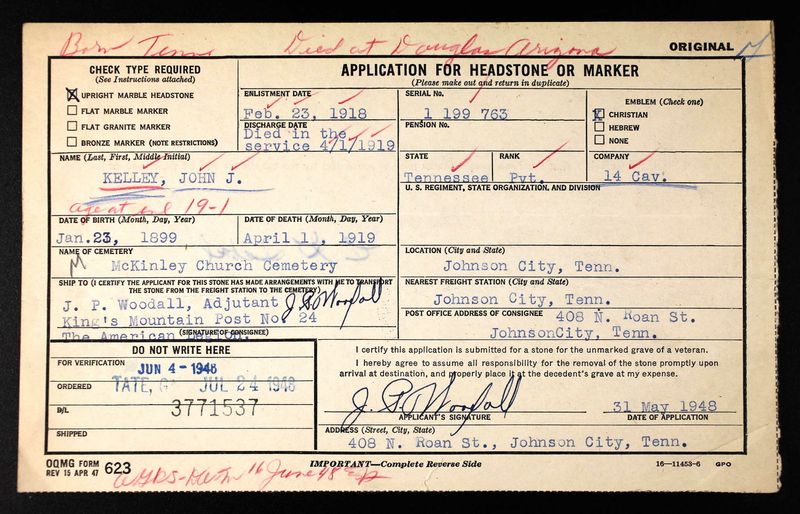 Born Tenn Died at Douglas Arizona
ORIGINAL
CHECK TYPE REQUIRED
(See Instructions attached)
UPRIGHT MARBLE HEADSTONE
FLAT MARBLE MARKER
FLAT GRANITE MARKER
BRONZE MARKER (NOTE RESTRICTIONS)
APPLICATION FOR HEADSTONE OR MARKER
(Please make out and return in duplicate)
ENLISTMENT DATE
Feb. 23, 1918
DISCHARGE DATE
Died in the
service 4/1/1919
SERIAL No.
1 199 763
PENSION No.
EMBLEM (Check one)
X CHRISTIAN
HEBREW
NONE
NAME (Last, First, Middle Initial)
KELLEY, JOHN J.
age at enl 19-1
STATE
Tennessee
RANK
Pvt.
COMPANY
14 Cav.
U. S. REGIMENT, STATE ORGANIZATION, AND DIVISION
DATE OF BIRTH (Month, Day, Year)
Jan.23, 1899
DATE OF DEATH (Month, Day, Year)
April 1, 1919
NAME OF CEMETERY
McKinley Church Cemetery
LOCATION (City and State)
Johnson City, Tenn.
SHIP TO (I CERTIFY THE APPLICANT FOR THIS STONE HAS MADE ARRANGEMENTS WITH ME TO TRANSPORT
THE STONE FROM THE FREIGHT STATION TO THE CEMETERY)
J. P. Woodall, Adjutant J. P. Woodall
King's Mountain Post No. 24
The American Legion.
(SIGNATURE OF CONSIGNEE)
NEAREST FREIGHT STATION (City and State)
Johnson City, Tenn.
POST OFFICE ADDRESS OF CONSIGNEE 408 N. Roan St.
JohnsonCity, Tenn.
DO NOT WRITE HERE
FOR VERIFICATION JUN 4 - 1948
ORDERED TATE, GA JUL 24 1948
B/L 3771537
SHIPPED
I certify this application is submitted for a stone for the unmarked grave of a veteran.
I hereby agree to assume all responsibility for the removal of the stone promptly upon
arrival at destination, and properly place it at the decedent's grave at my expense.
J. P. Woodall 31 May 1948
APPLICANT'S SIGNATURE DATE OF APPLICATION
ADDRESS (Street, City, State)
408 N. Roan St., Johnson City, Tenn.
OQMG FORM 623
REV 15 APR 47
IMPORTANT—Complete Reverse Side
16—11453-6 GPO
16 June 48